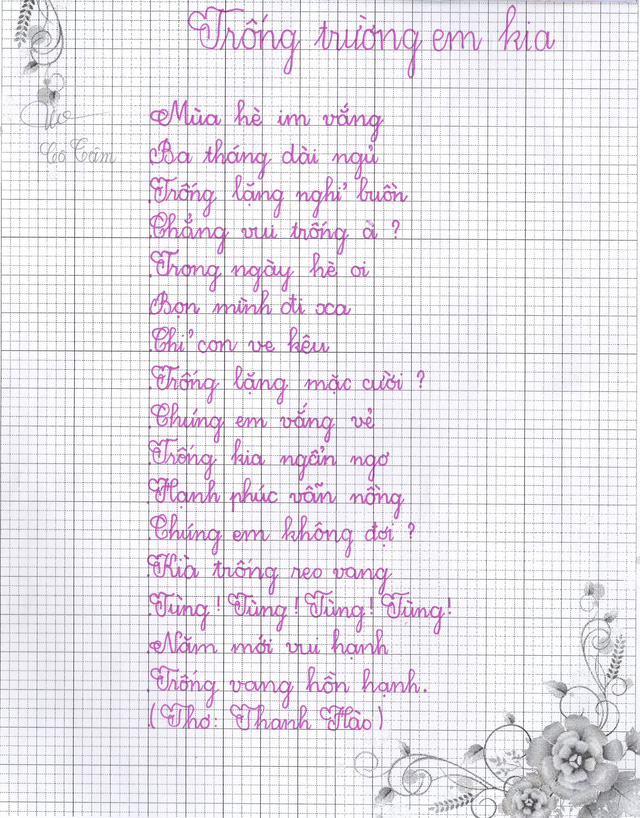 Trống trường em kia
Cô Tâm
Mùa hè im vắng
Ba tháng dài ngủ
Trống lặng nghỉ buồn
Chẳng vui trống à ?
Trong ngày hè oi
Bọn mình đi xa
Chỉ con ve kêu
Trống lặng mặc cười ?
Chúng em vắng vẻ
Trống kia ngẩn ngơ
Hạnh phúc vẫn nồng
Chúng em không đợi ?
Kìa trống reo vang
Tùng ! Tùng ! Tùng ! Tùng !
Năm mới vui hạnh
Trống vang hồn hạnh.
( Thơ : Thanh Hào )